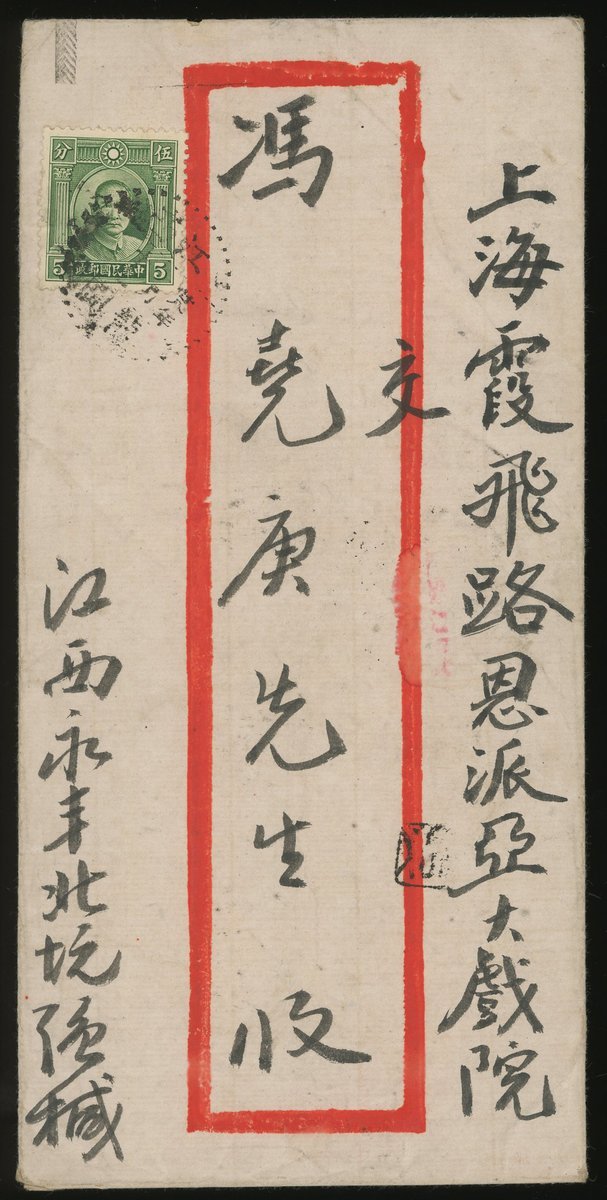 上海霞飛路恩派亞大戲院
交
馮堯庚先生收
江西永丰北坑強械
伍 分
中華民國郵政
5 5
江